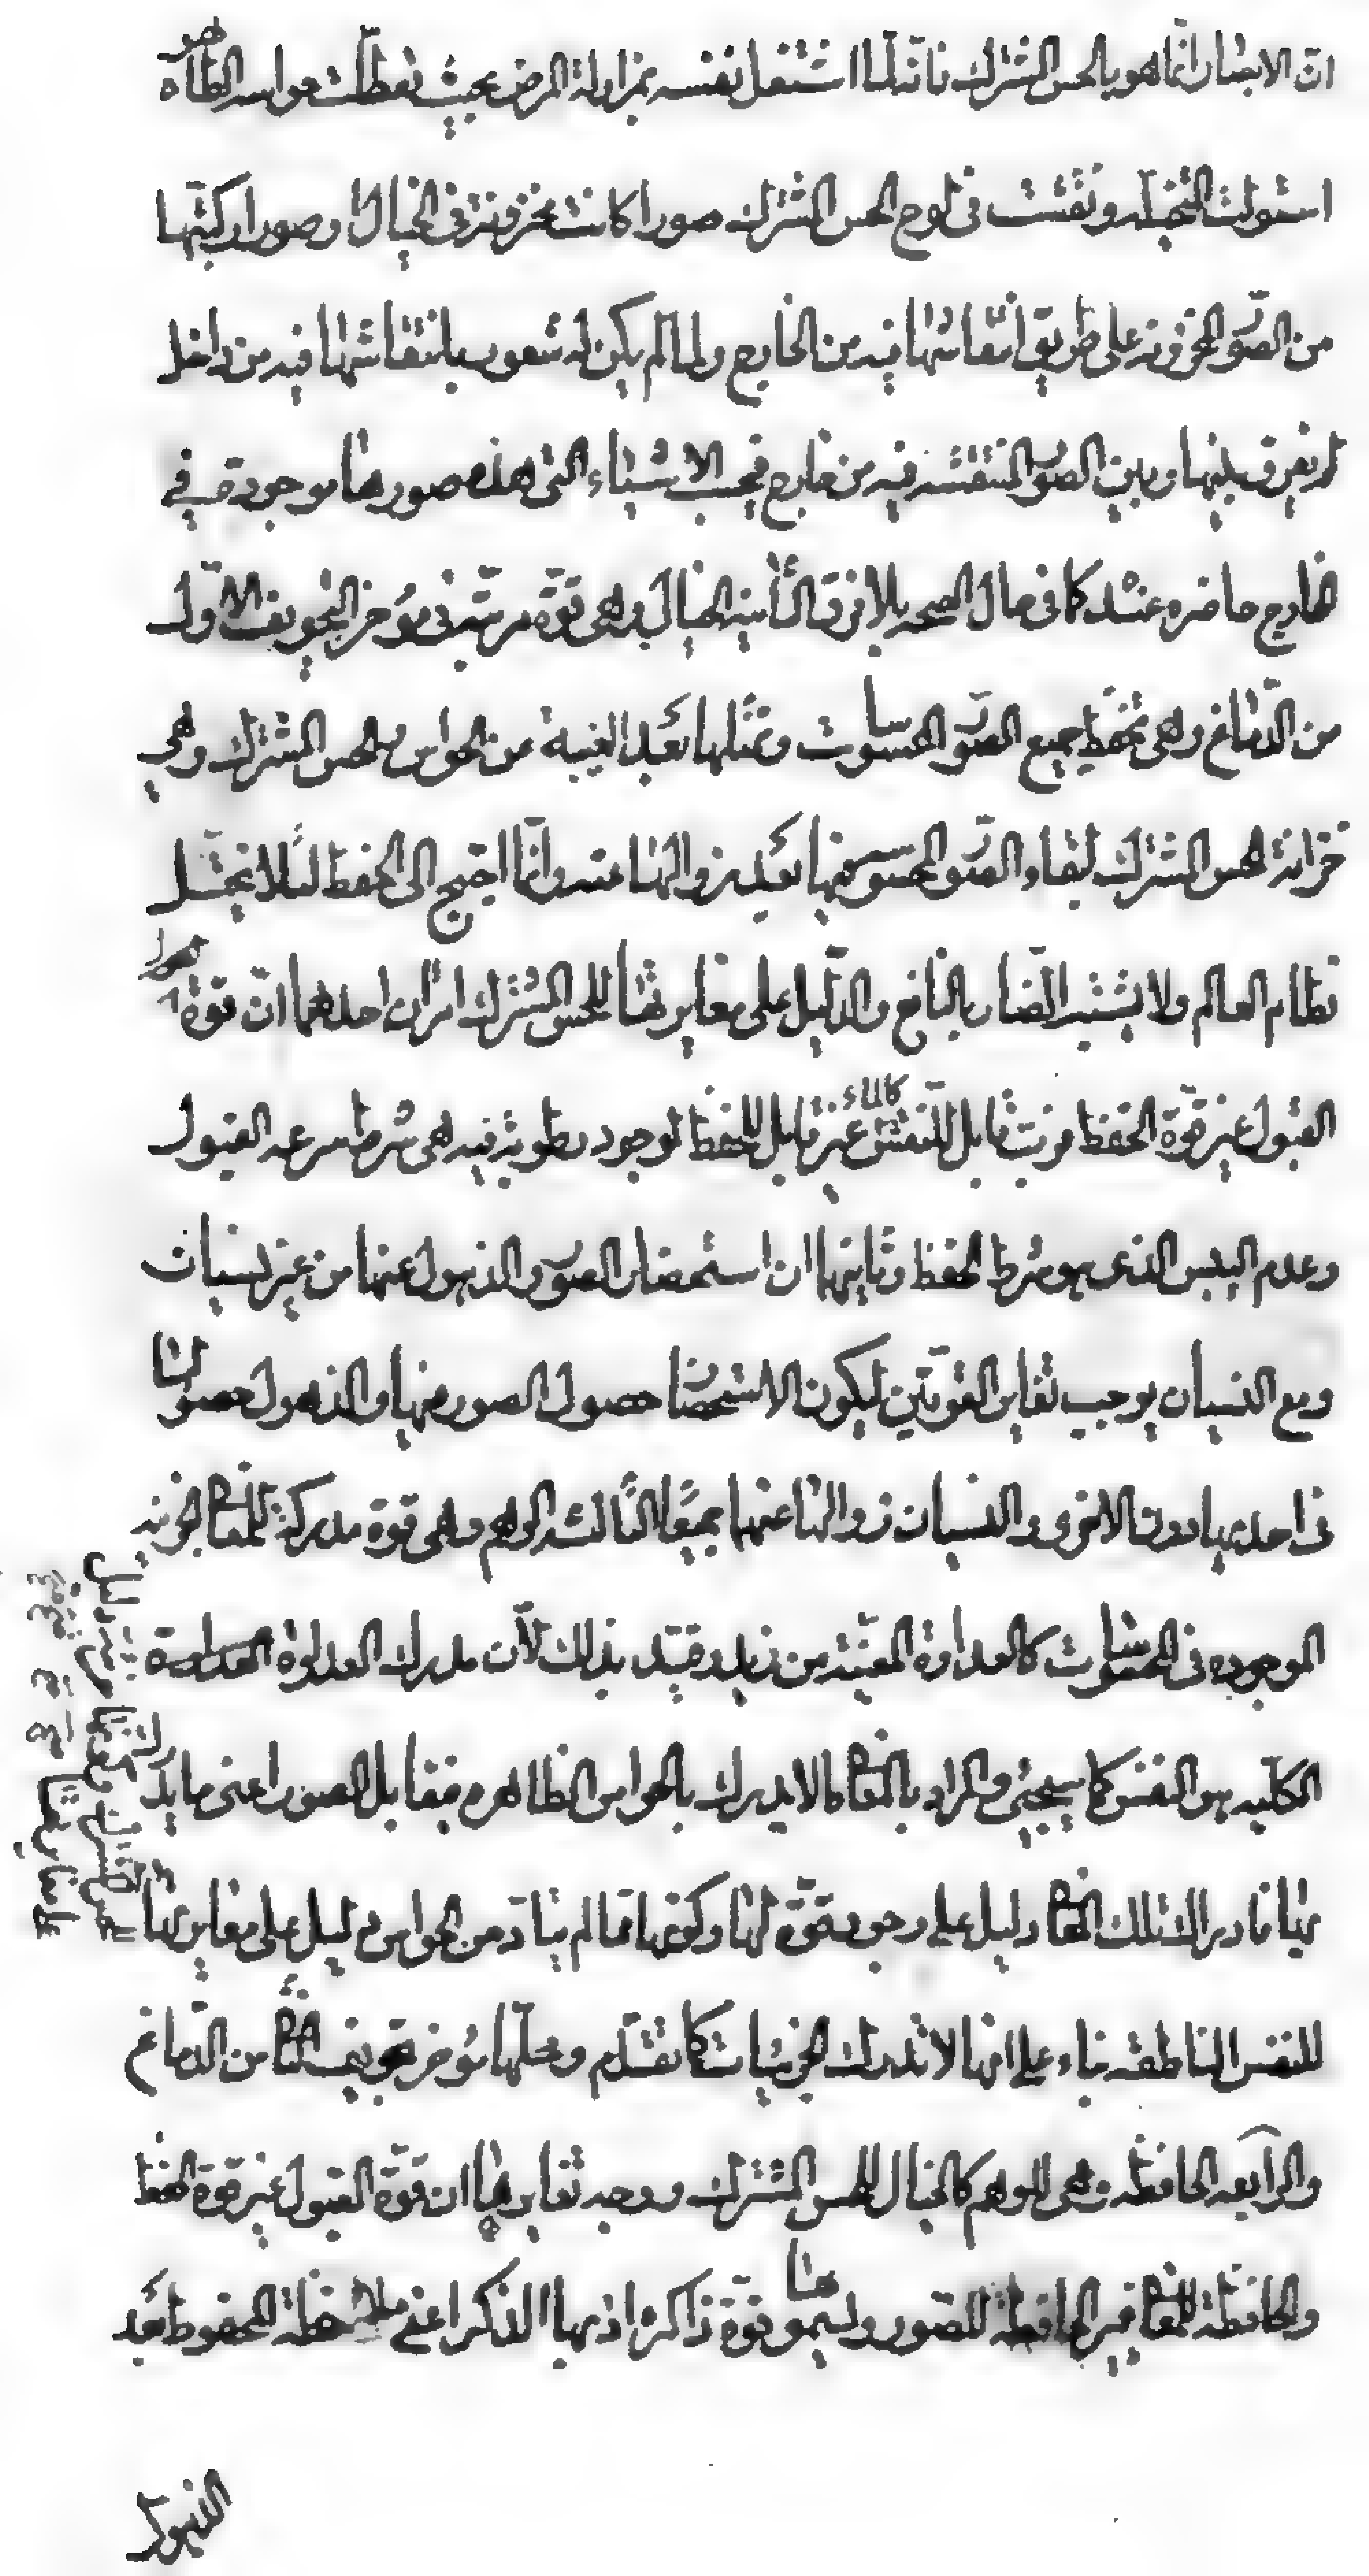 ان الابصار انما هو بالحس المشترك فانه لما اشتغل نفسه بمزاولة المرض بحيث تعطلت حواسه الظاهره
استولت المتخيله ونقشت فى لوح الحس المشترك صورا كانت مخزونة فى الخيال او صورا ركبتها
من الصور المخزونه على طريق انتقاشها فيه من الخارج ولما لم يكن له شعور بانتقاشها فيه من داخل
لم يفرق بينها وبين الصور المنتقشه فيه من خارج فيحسب الاشياء التى هذه صورها موجودة فى
الخارج حاضره عنده كما فى حال الصحه بلا فرق الثانيه الخيال وهى قوة مرتبه فى مؤخر التجويف الاول
من الدماغ وهى تحفظ جميع الصور المحسوسات وتمثلها بعد الغيبة من الحواس والحس المشترك وهى
خزانة الحس المشترك لبقاء الصور المحسوسه فيها بعد زوالها عنه وانما احتيج الى الحفظ لئلا يختل
نظام العالم ولا يشتبه الضار بالنافع والدليل على مغايرتها للحس المشترك امران احدهما ان قوة
القبول غير قوة الحفظ فرب قابل للنقش كالماء غير قابل للحفظ لوجود رطوبة فيه هى شرط سرعه القبول
وعدم اليبس الذى هو شرط الحفظ وثانيها ان استحضار الصور والذهول عنها من غير نسيان
ومع النسيان يوجب تغاير القوتين ليكون الاستحضار حصول الصور فيها والذهول حصولها
فى احديهما دون الاخرى والنسيان زوالها عنهما جميعا الثالثه الوهم وهى قوة مدركة للمعانى الجزئيه
الموجوده فى المحسوسات كالعداوة المعينه من زيد وقيد بذلك لان مدرك العداوة
الكليه هو النفس كما سيجئى والمراد بالمعانى ما لا يدرك بالحواس الظاهره فيقابل الصور اعنى ما يدرك
بها فادراك تلك المعانى دليل على وجود قوة لها وكونها مما لم يتاد من الحواس دليل على مغايرتها
للنفس الناطقه بناء على انها لا تدرك الجزئيات كما تقدم ومحلها مؤخر تجويف الثانى من الدماغ
والرابعه الحافظه وهى للوهم كالخيال للحس المشترك ووجه تغايرهما ان قوة القبول غير قوة الحفظ
والحافظة للمعانى غير الحافظه للصور ويسمونها قوة ذاكرة اذ بها الذكر اعنى ملاحظة المحفوظ بعد